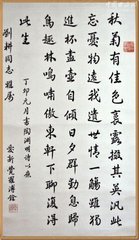 秋菊有佳色裛露掇其英汎此
忘憂物遠我遺世情一觴雖獨
進杯盡壺自傾日夕群動息歸
鳥趨林鳴嘯傲東軒下聊復得
此生
丁卯元月書陶淵明詩以應
劉耕同志雅屬
愛新覺羅溥